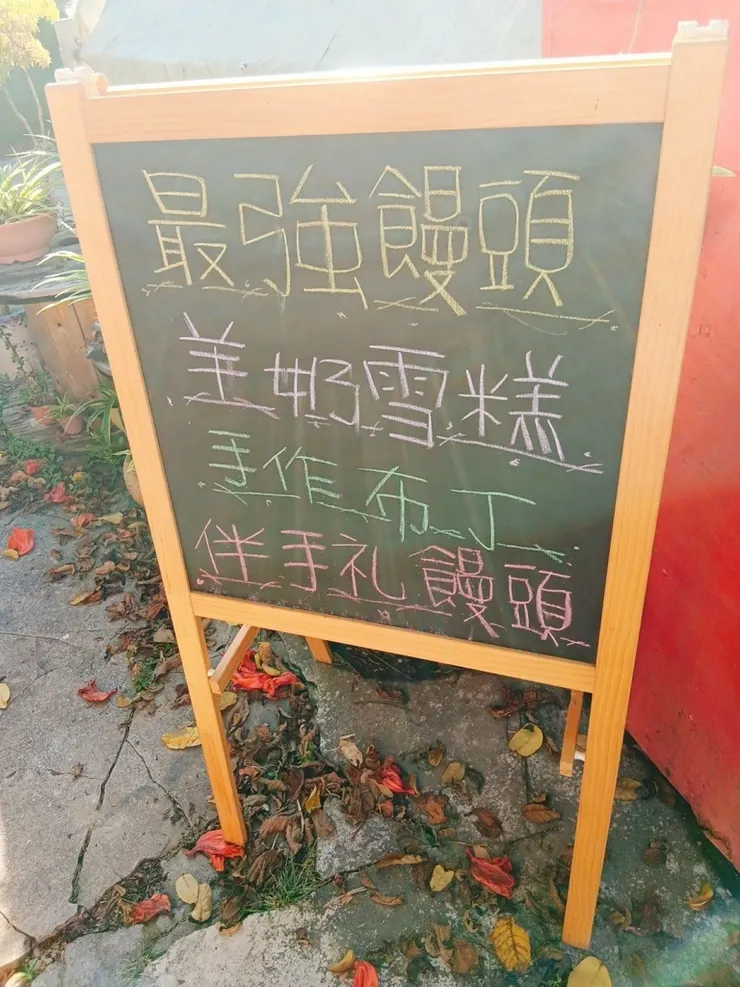 最強饅頭
羊奶雪糕
手作布丁
伴手礼饅頭